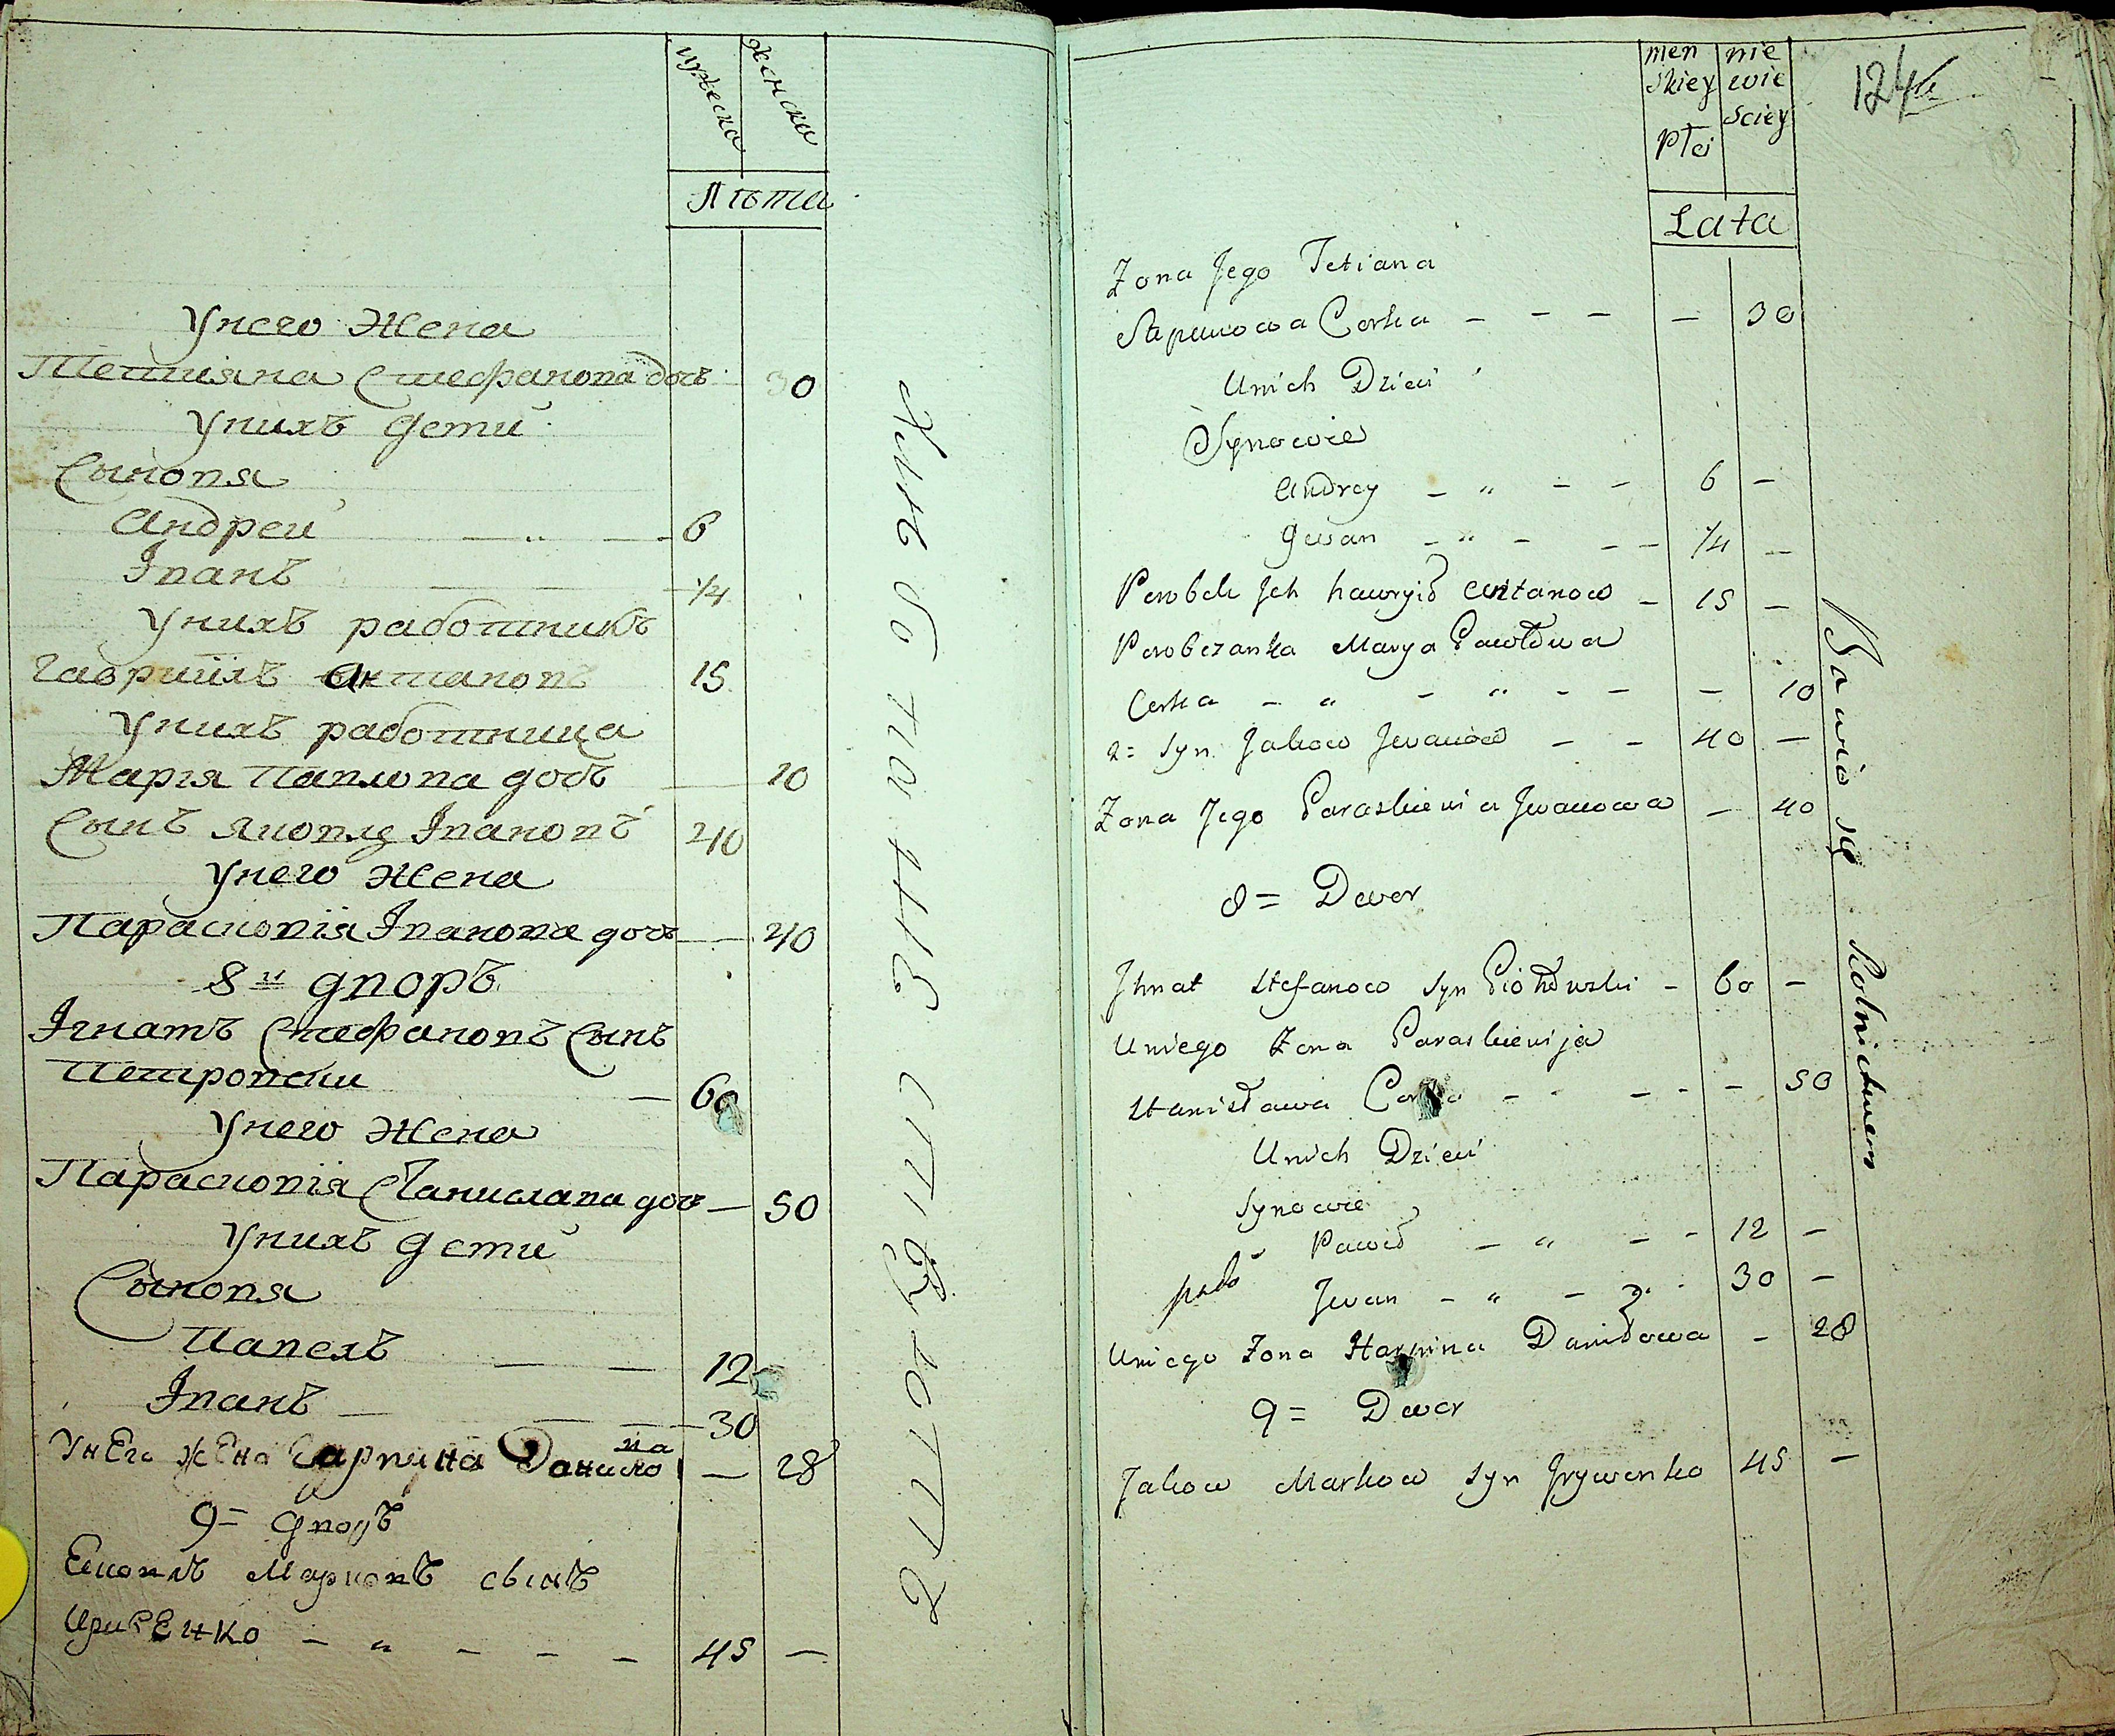 мужеска
женска
Лѣта
У него Жена
Тетияна Стефанова дочь 30
У нихъ дети
Сыновя
Андрей — „ — 6
Iванъ — — 1/4
У нихъ работникъ
Гавриилъ Антановъ 15
У нихъ работница
Марiя Павлова дочь — 10
Сынъ Яковъ Iвановъ 40
У него Жена
Парасковiя Iванова дочь — 40
8й дворъ
Iгнатъ Стефановъ Сынъ
Петровски — 60
У него Жена
Парасковiя Станислава дочь — 50
У нихъ дети
Сыновя
Павелъ — — 12
Iванъ — — 30
У нЕго жЕна Гарпина Данилова — 28
9= дворъ
Марковъ сынъ
— „ — — — 45 —
Хлѣбопашествуютъ
men
skiey
Płci
nie
wie
sciey
124
Lata
Zona Jego Tetiana
Corka — — — — 30
Unich Dzieci
Synowie
Andrey — „ — — 6 —
Jwan — „ — — — 1/4 —
Parobek Jch hawryło Antanow — 15 —
Parobczanka Marya Pawłowa
Corka — „ — „ — — — 10
2= Syn Jakow Jwanow — — 40 —
Zona Jego Paraskiewia Jwanowa — 40
8= Dwor
Jhnat Stefanow Syn Piotrowski — 60 —
Uniego Zona Paraskiewija
Stanisława Corka — — — — 50
Unich Dzieci
Synowie
Paweł — „ — — 12 —
Jwan — „ — 30 —
Uniego Zona Harpina Daniłowa — 28
9= Dwor
Jakow Markow Syn Jrywenko 45 —
Bawio się Rolnictwem